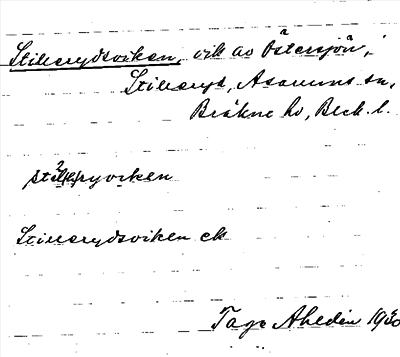 Stillerydsviken, vik av Östersjön,
Stilleryd, Asarums sn,
Bräkne hd, Blek. l.
ryviken
Stillerydsviken ek
Tage Ahldén 1930